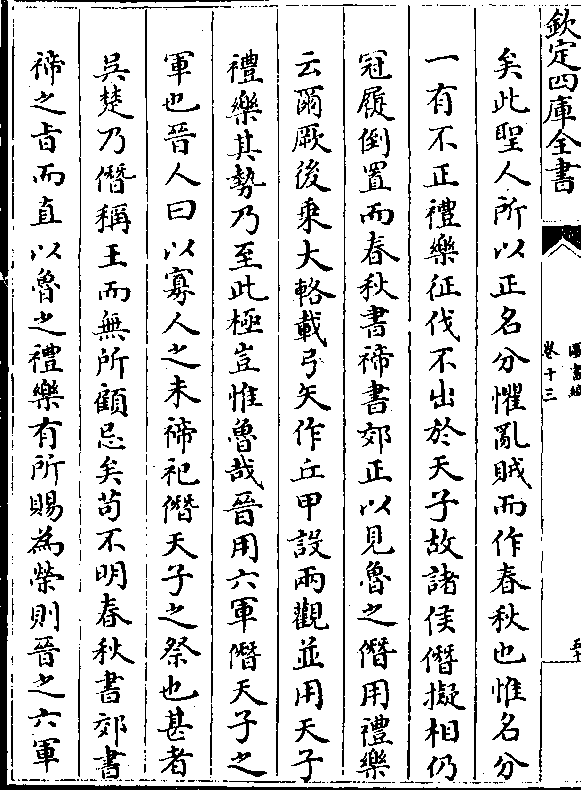 欽定四庫全書
圖書編
卷十三
矣此聖人所以正名分懼亂賊而作春秋也惟名分
一有不正禮樂征伐不出於天子故諸侯僭擬相仍
冠履倒置而春秋書禘書郊正以見魯之僭用禮樂
云爾厥後乘大輅載弓矢作丘甲設兩觀並用天子
禮樂其勢乃至此極豈惟魯哉晉用六軍僭天子之
軍也晉人曰以寡人之未禘祀僭天子之祭也甚者
吳楚乃僭稱王而無所顧忌矣苟不明春秋書郊書
禘之旨而直以魯之禮樂有所賜為榮則晉之六軍